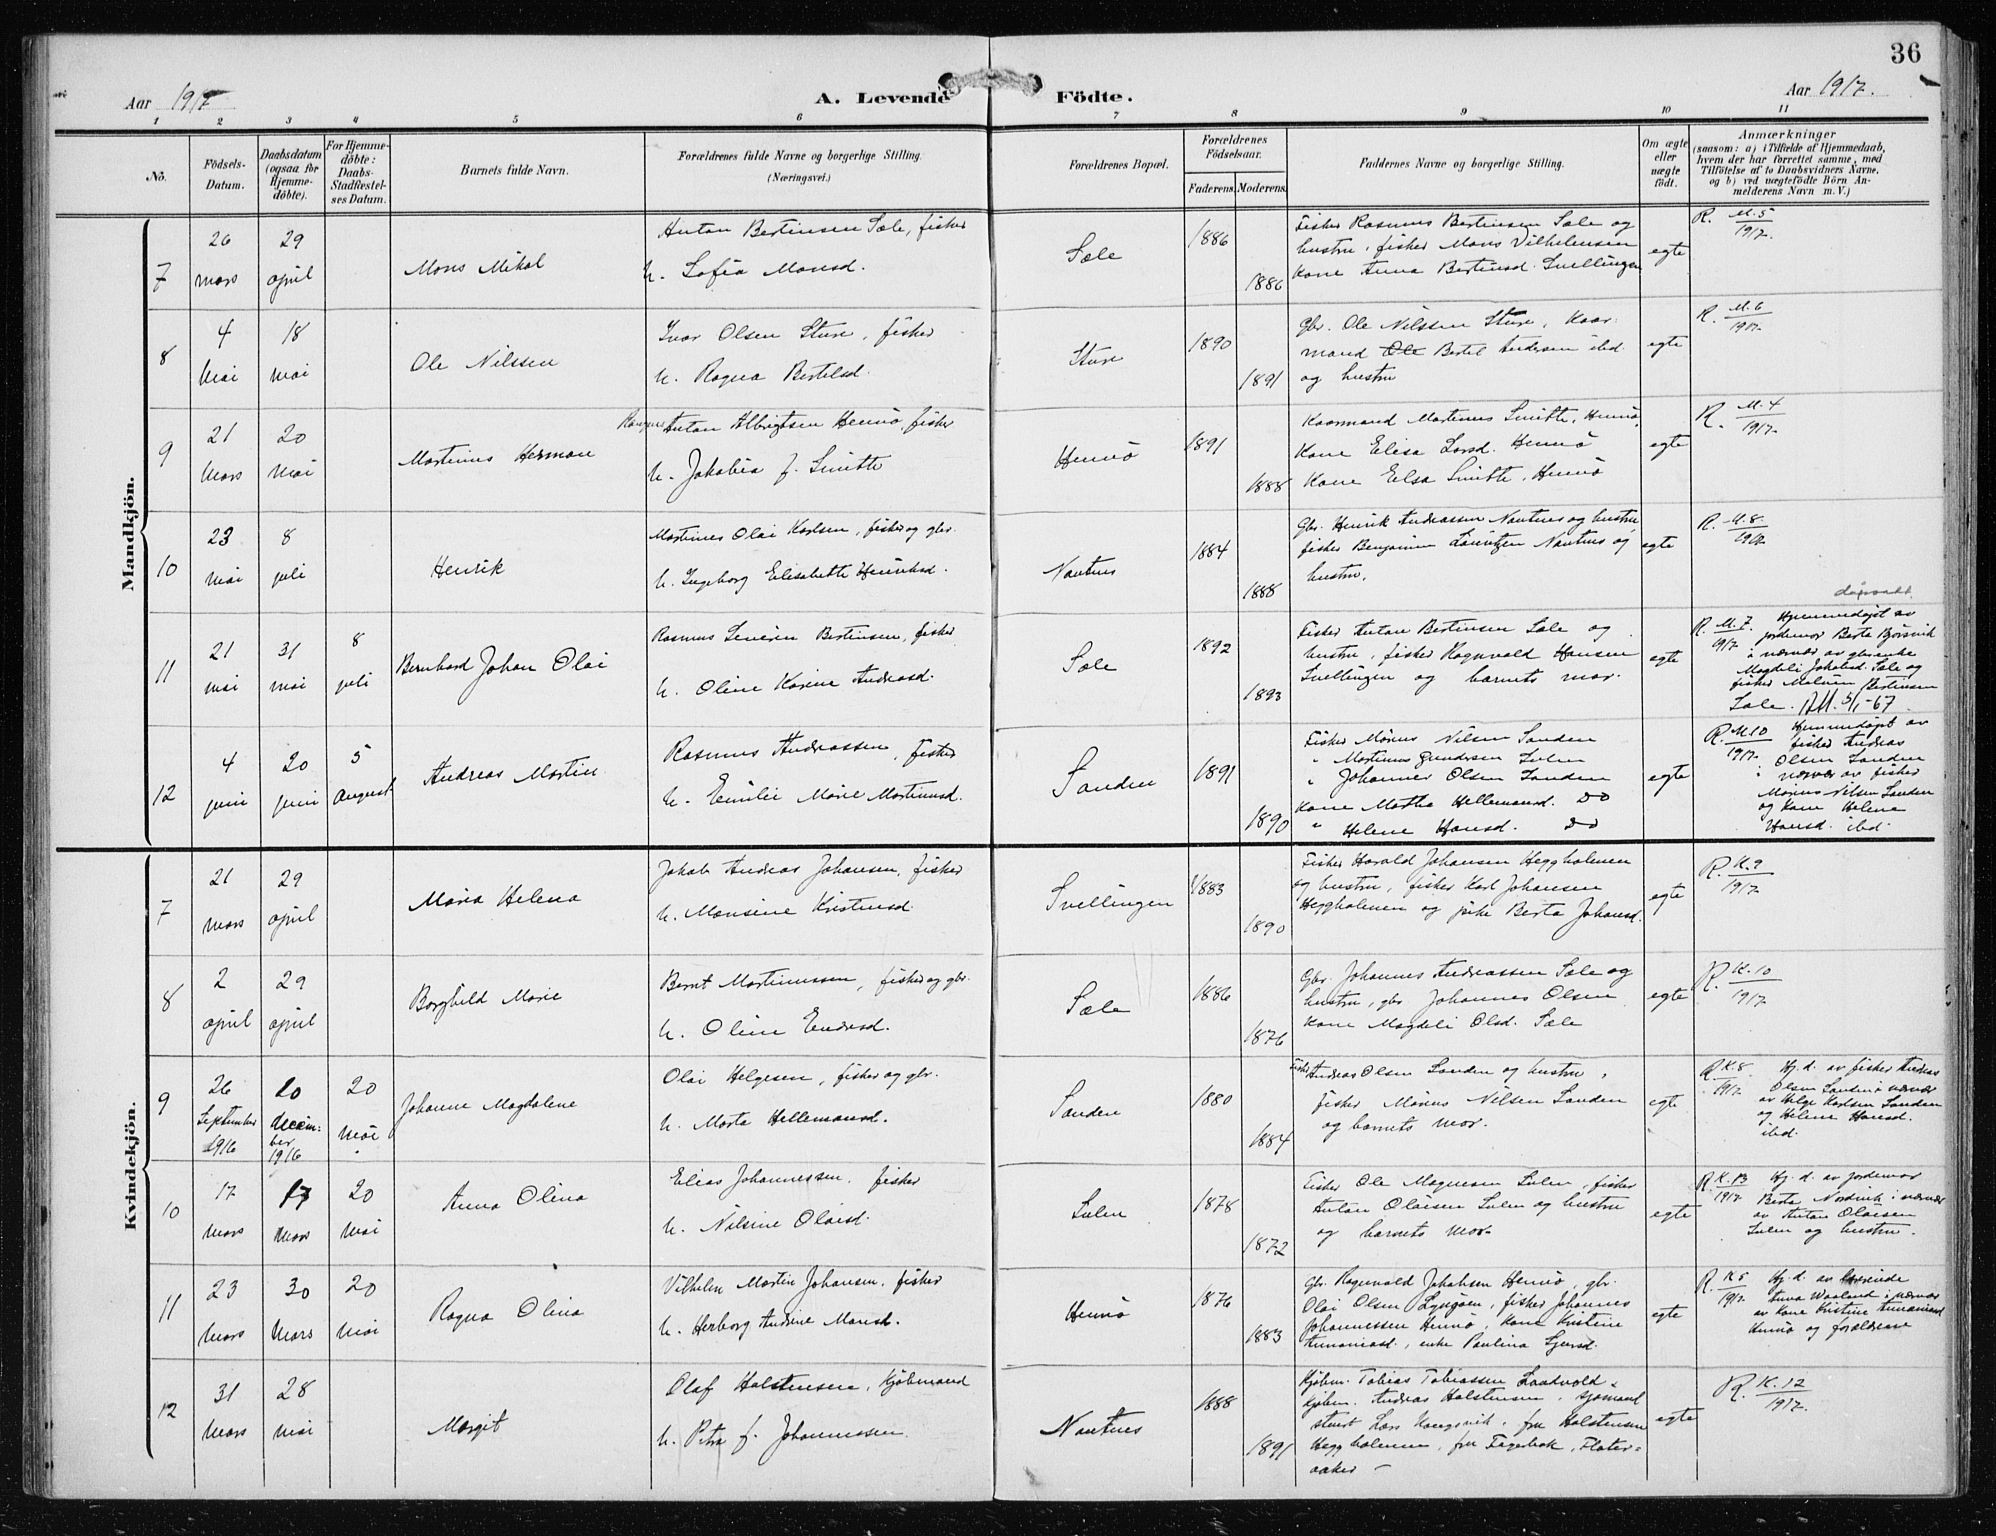 36
Aar 1917 A. Levende Födte. Aar 1917.
1 2 3 4 5 6 7 8 9 10 11
No. Födsels-Datum. Daabsdatum (ogsaa for Hjemme-döbte). For Hjemme-döbte: Daabs-Stadfæstel-ses Datum. Barnets fulde Navn. Forældrenes fulde Navne og borgerlige Stilling. (Næringsvei.) Forældrenes Bopæl. Forældrenes Födselsaar. Faderens. Moderens. Faddernes Navne og borgerlige Stilling. Om ægte eller uægte födt. Anmærkninger
(saasom: a) i Tilfælde af Hjemmedaab,
hvem der har forrettet samme, med
Tilföielse af to Daabsvidners Navne,
og b) ved uægtefödte Börn An-
melderens Navn m. V.)
Mandkjön.
7 26 mars 29 april Mons Mikal
Anton Bertinsen Sæle, fisker
h. Sofia Monsd.
Sæle 1886 1886
Fisker Rasmus Bertinsen Sæle og
hustru, fisker Mons Vilhelmsen
kone Anna Bertinsd. Svellingen
egte R. M.5 1917.
8 4 mai 18 mai Ole Nilssen
Ivar Olsen Sture, fisker
h. Ragna Bertelsd.
Sture 1890 1891
Gbr. Ole Nilssen Sture, Kaar-
mand Ole Bertel Andersen ibd.
og hustru
egte R. M.6 1917.
9 21 mars 20 mai Martinus Herman
Anton Albrigtsen Hennö, fisker
h. Jakobia f. Smitte
Hennö 1891 1888
Kaarmand Martinus Smitte, Hennö,
Kone Elisa Larsd. Hennö
Kone Elsa Smitte, Hennö
egte R. M.4 1917.
10 23 mai 8 juli Henrik
Martines Olai Karlsen, fisker og gbr.
h. Ingeborg Elisabette Henriksd.
Nautnes 1884 1888
Gbr. Henrik Andreassen Nautnes og hustru,
fisker Benjamin Lauritzen Nautnes og
hustru.
egte R. M.8. 1917.
11 21 mai 31 mai 8 juli Bernhard Johan Olai
Rasmus Severin Bertinsen, fisker
h. Oline Karine Andreasd.
Sæle 1892 1893
Fisker Anton Bertinsen Sæle og
hustru, fisker Ragnvald Hansen
Svellingen og barnets mor.
egte R. M.7. 1917. Hjemmedøpt av
jordemor Berta Bjørsvik
i nærvær av gbrenke
Magdeli Jakobsd. Sæle og
fisker Bertinsen
Sæle. 5/1-67
12 4 juni 20 juni 5 August Andreas Martin
Rasmus Andreassen, fisker
h. Emilie Marie Martinusd.
Sanden 1891 1890
Fisker Mons Nilsen Sanden
" Martinus Gundersen Sulen
" Johannes Olsen Sanden
Kone Martha Hellemansd. Do
" Helene Hansd. Do
egte R. M.10 1917. Hemmedøpt av
fisker Andreas
Olsen Sanden
i nærvær av fisker
Mons Nilsen Sanden
og kone Helene
Hansd. ibd.
Kvindekjön.
7 21 mars 29 april Maria Helena
Jakob Andreas Johansen, fisker
h. Monsine Kristensd.
Svellingen 1883 1890
Fisker Harald Johansen Heggholmen
og hustru, fisker Karl Johansen
Heggholmen og pike Berta Johansd.
egte R. K.9 1917.
8 2 april 29 april Borghild Marie
Bernt Martinussen, fisker og gbr.
h. Oline Endresd.
Sæle 1886 1876
Gbr. Johannes Andreassen Sæle og
hustru, gbr Johannes Olsen
kone Magdeli Olsd. Sæle
egte R. K.10 1917.
9 26 September 1916 20 Decem-ber 1916 20 mai Johanne Magdalene
Olai Helgesen, fisker og gbr.
h. Marta Hellemansd.
Sanden 1880 1884
Fisker Andreas Olsen Sanden og hustru,
fisker Mons Nilsen Sanden
og barnets mor.
egte R. K.8 1917. Hj. d. av fisker Andreas
Olsen Sanden i nærvær
av Helge Karlsen Sanden
og Helene Hansd.
ibd.
10 17 mars 17 mars 20 mai Anna Olina
Elias Johannessen, fisker
h. Nilsine Olaisd.
Sulen 1878 1872
Fisker Ole Magnesen Sulen, fisker
Anton Olaisen Sulen og hustru
og barnets mor.
egte R. K.13 1917. Hj. d. av jordemor
Berta Nordvik i nærvær
av Anton Olaisen
Sulen og hustru.
11 23 mars 30 mars 20 mai Ragna Olina
Vilhelm Martin Johansen, fisker
h. Herborg Andrine Monsd.
Hennö 1876 1883
Gbr. Ragnvald Jakobsen Hennö, gbr.
Olai Olsen Lyngöen, fisker Johannes
Johannessen Hennö, kone Kristine
Ananiasd., enke Paulina Sjursd.
egte R. K.5 1917. Hj. d. av lærerinde
Anna Waaland i nærvær
av kone Kristine Ananiasd
Hennö og forældrene
12 31 mars 28 mai Margit
Olaf Halstensen, Kjöbmand
h. Petra f. Johannessen.
Nautnes 1888 1891
Kjöbm. Tobias Tobiassen Landvold,
kjöbm. Andreas Halstensen, sjömand
stuert Lars, fru Halstensen
Heggholmen, fru Fagerbak, Flater-
aaker –
egte R. K.12 1917.